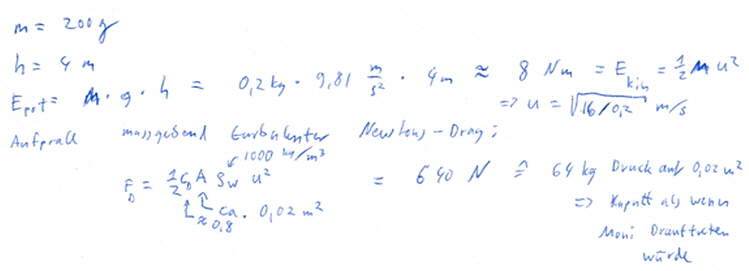 m = 200g
h = 4 m
E_pot = m · g · h = 0,2 kg · 9,81 m/s² · 4m ≈ 8 Nm = E_kin = 1/2 m u²
=> u = √16/0,2 m/s
Aufprall massgebend turbulenter Newtons-Drag:
1000 kg/m³
F_D = 1/2 c_D A ρ_w u² = 640 N ≙ 64 kg Druck auf 0,02 m²
ca. 0,02 m²
≈ 0,8
=> Kaputt als wenn
Moni Drauftreten
würde